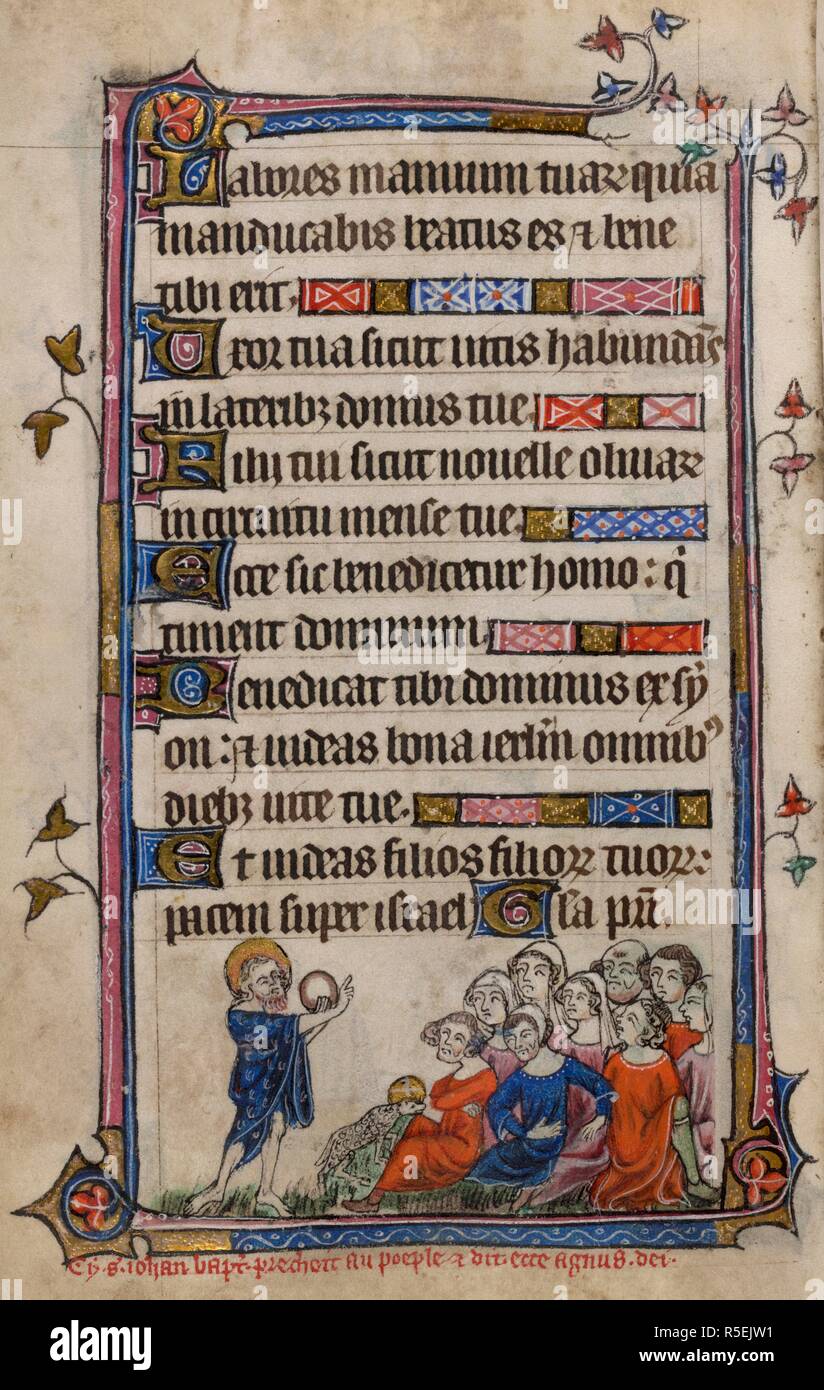 Labores manuum tuaꝝ quia
manducabis beatus es ⁊ bene
tibi erit.
Uxor tua sicut uitis habundās
in laterib⁊ domus tue.
Filij tui sicut nouelle oliuaꝝ
in circuitu mense tue.
Ecce sic benedicetur homo: q̄
timent dominum.
Benedicat tibi dominus ex sy
on: ⁊ uideas bona ierlm̄ omnibꝰ
dieb⁊ uite tue.
Et uideas filios filioꝝ tuoꝝ:
pacem super israel Gl̄a pr̄i.
Cy .s. iohan bapt̄. prechoit au poeple ⁊ dit ecce agnus. dei.
alamy
alamy
Image ID: R5EJW1
www.alamy.com